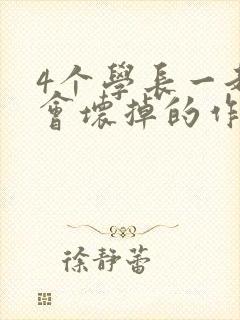 4个學長一
會壞掉的作
徐静蕾